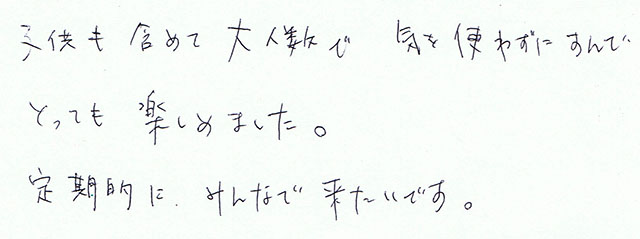 子供も含めて 大人数で 気を使わずにすんで
とっても 楽しめました。
定期的に、みんなで 来たいです。